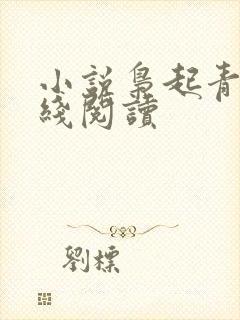 小說梟起青
綫閱讀
劉標